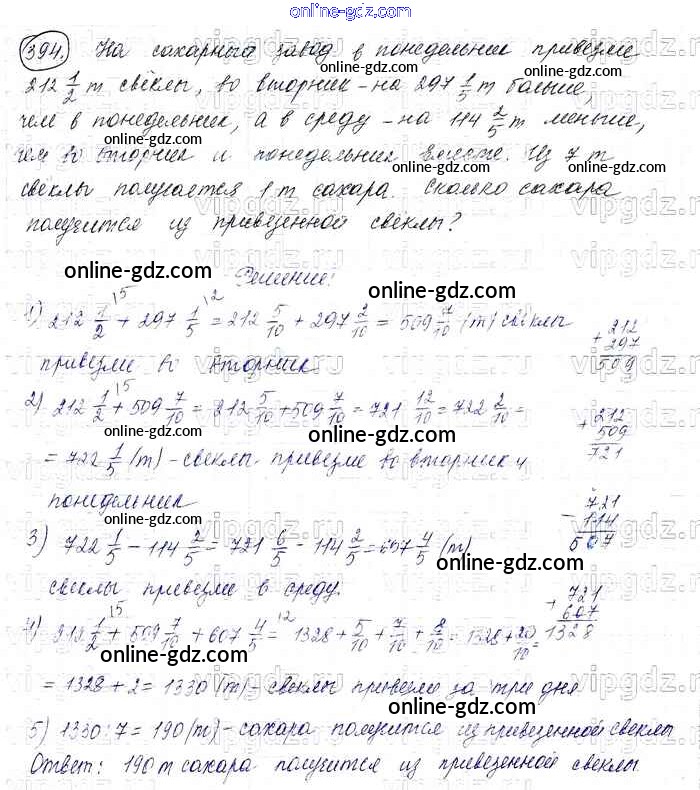 online-gdz.com
394. На сахарный завод в понедельник привезли
212 1/2 т свёклы, во вторник – на 297 1/5 т больше,
чем в понедельник, а в среду – на 114 2/5 т меньше,
чем во вторник и понедельник вместе. Из 7 т
свёклы получается 1 т сахара. Сколько сахара
получится из привезенной свеклы?
Решение:
1) 212 1/2 + 297 1/5 = 212 5/10 + 297 2/10 = 509 7/10 (т) свёклы
привезли во вторник
212 + 297 509
2) 212 1/2 + 509 7/10 = 212 5/10 + 509 7/10 = 721 12/10 = 722 2/10 =
= 722 1/5 (т) – свеклы привезли во вторник и
понидельник
212 + 509 721
3) 722 1/5 – 114 2/5 = 721 6/5 – 114 2/5 = 607 4/5 (т)
свеклы привезли в среду.
721 – 114 607
4) 212 1/2 + 509 7/10 + 607 4/5 = 1328 + 5/10 + 7/10 + 8/10 = 1328 + 20/10 =
721 + 607 1328
= 1328 + 2 = 1330 (т) – свеклы привезли за три дня
5) 1330 : 7 = 190 (т) – сахара получится из привезенной свеклы
Ответ: 190 т сахара получится из привезенной свеклы